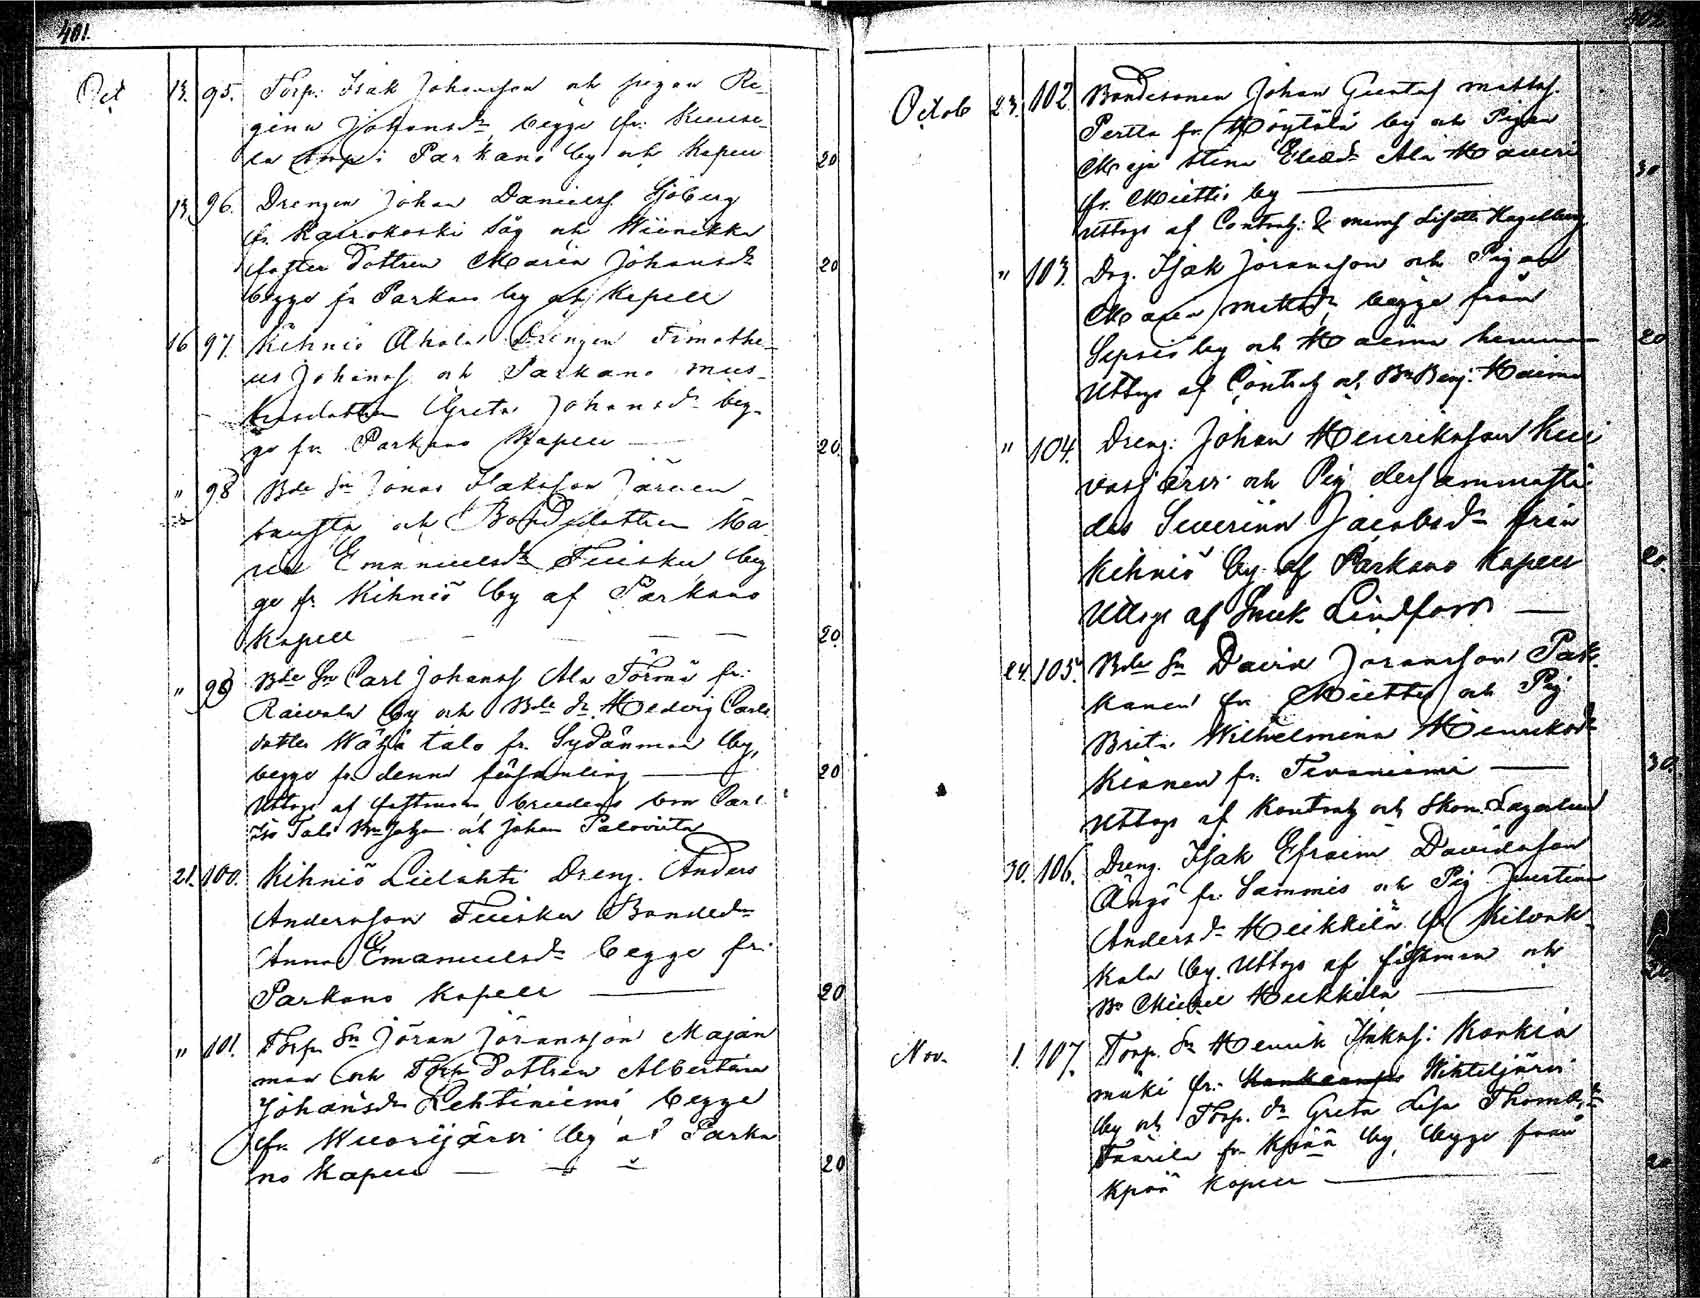 401.
Oct 13. 95. Torp. Isak Johansson och pigan Re-
gina Johansdr, begge fr. Kuuse-
la torp i Parkano by och Kapell 20
13. 96. Drengen Johan Daniels Sjöberg
fr. Kairokoski Såg och
dottren Maria Johansdr
begge fr Parkano by och Kapell 20
16 97. Kihniö Ahola Drengen Timothe-
us Johanss och Parkano
Greta Johansdr beg-
ge fr. Parkano Kapell 20.
" 98 Bde Sn Jonas Isaksson Järven
och Bondedottren Ma-
ria Emanuelsdr Tuisku beg
ge fr. Kihniö by af Parkano
Kapell 20.
" 99 Bde Sn Carl Johanss Ala Törmä fr.
Raivala by och Bde dr. Hedvig Carls
dotter talo fr. Sydänmaa by,
begge fr. denna församling 20
Uttogs af fästman brudens bror Carl
Iso Talo och Johan Palovuita
21. 100. Kihniö Lielahti Dreng. Anders
Andersson Tuisku Bonded-
Anna Emanuelsdr begge fr.
Parkano Kapell 20
" 101. Torp Sn Jöran Jöransson Majan
maa och Torp dottren Albertina
Johansdr Lehtiniemi, begge
fr. Wuorijärvi by af Parka
no Kapell 20
Octob 23. 102. Bondesonen Johan Gustaf Mattss.
Pertta fr. Höytölä by och Pigan
Maja Stina Ala Haveri
fr. Miettis by 30
Uttogs af Contrah: & Lisette Hagelberg
" 103. Drg. Isak Jöransson och Pigan
Maria Mattsdr, begge från
Sipsiö by och Haima hemman 20
Uttogs af Contrah och Bn Benj. Haima
" 104. Dreng. Johan Henriksson Kui
vasjärvi och Pig dersammasttä
des Severina Jacobsdr från
Kihniö by af Parkano Kapell 20.
Uttogs af Lindfors
24. 105. Bde Sn David Jöransson Pak-
kanen fr. Miettis och Pig
Brita Wilhelmina Henriksdr
Kianen fr. Tevaniemi 30.
Uttogs af Kontrah och Skom. Lagerlund
30. 106. Dreng. Isak Efraim Davidsson
Ängö fr. Sammis och Pig Justina
Andersdr Heikkilä fr Kilvak-
kala by. Uttogs af fästman och
Bn Michel Heikkilä
Nov. 1. 107. Torp. Sn Henrik Isakss: Konkin
mäki fr. Wihteljärvi
by och Torp. dr Greta Lisa Thomasdr
Taarila fr. Kyrö by, begge från
Kyrö Kapell 20